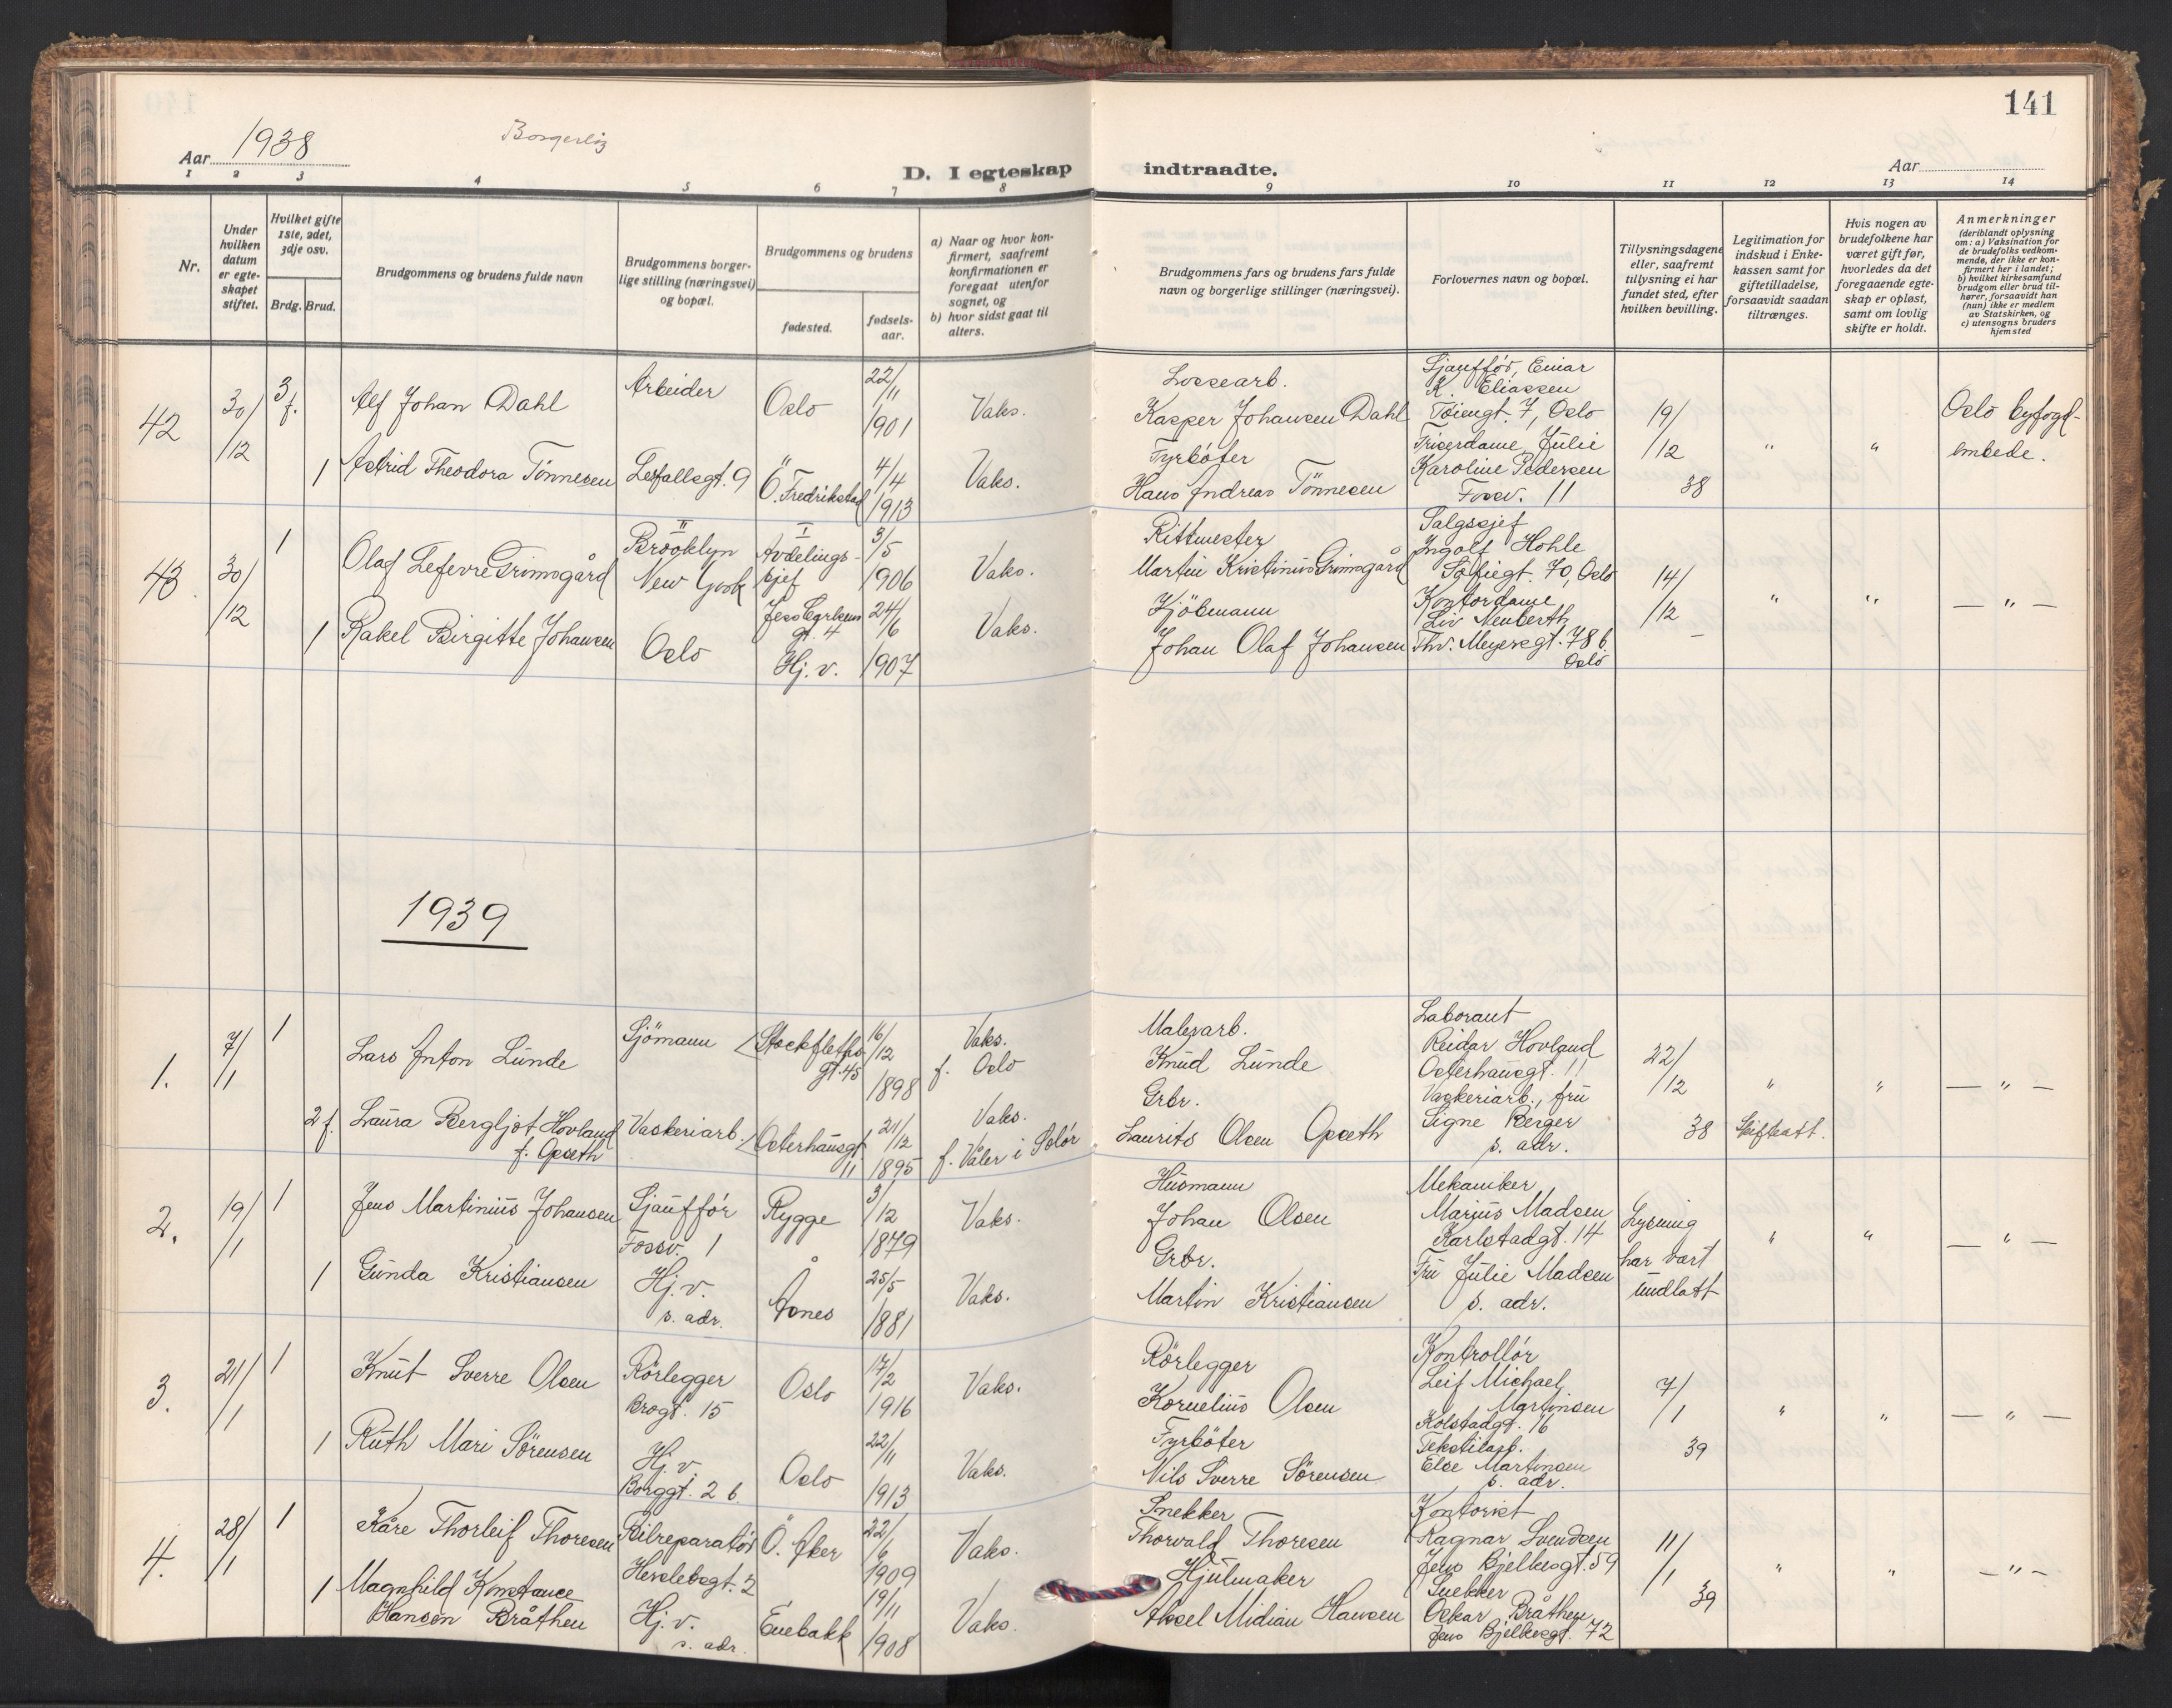 141
Aar 1938
Borgerlig
D. I egteskap
indtraadte.
Aar
1 2 3 4 5 6 7 8 9 10 11 12 13 14
Nr.
Under hvilken datum er egteskapet stiftet.
Hvilket gifte 1ste, 2det, 3dje osv.
Brdg. Brud.
Brudgommens og brudens fulde navn
Brudgommens borgerlige stilling (næringsvei) og bopæl.
Brudgommens og brudens
fødested.
fødselsaar.
a) Naar og hvor konfirmert, saafremt konfirmationen er foregaat utenfor sognet, og
b) hvor sidst gaat til alters.
Brudgommens fars og brudens fars fulde navn og borgerlige stillinger (næringsvei).
Forlovernes navn og bopæl.
Tillysningsdagene eller, saafremt tilysning ei har fundet sted, efter hvilken bevilling.
Legitimation for indskud i Enkekassen samt for giftetilladelse, forsaavidt saadan tiltrænges.
Hvis nogen av brudefolkene har været gift før, hvorledes da det foregaaende egteskap er opløst, samt om lovlig skifte er holdt.
Anmerkninger (deriblandt oplysning om: a) Vaksination for de brudefolks vedkommende, der ikke er konfirmert her i landet; b) hvilket kirkesamfund brudgom eller brud tilhører, forsaavidt han (hun) ikke er medlem av Statskirken, og c) utensogns bruders hjemsted
42 30/12 3 f. Alf Johan Dahl Arbeider Oslo 22/11 1901 Vaks.
Lossearb. Kasper Johansen Dahl
Sjauffør, Einar K. Eliassen Tøiengt. 7, Oslo
19/12 38 " " Oslo byfogdembede.
1 Astrid Theodora Tønnesen Lesfallsgt. 9 Ö. Fredrikstad 4/4 1913 Vaks.
Fyrbøter Hans Andreas Tönnesen
Friserdame Julie Karoline Pedersen Fossv. 11
43 30/12 1 Olaf Lefevre Grimsgård II Brooklyn New York I Avdelingssjef 3/5 1906 Vaks.
Rittmester Martin Kristinius Grimsgård
Salgssjef Ingolf Hohle Sofiegt. 70, Oslo
14/12 " " — " —
1 Rakel Birgitte Johansen Oslo gt. 4 Hj. v. 24/6 1907 Vaks.
Kjöbmann Johan Olaf Johansen
Kontordame Liv Neuberth Thv. Meyersgt. 78 b. Oslo
1939
1. 7/1 1 Lars Anton Lunde Sjömann Stockflethsgt. 45 16/12 1898 Vaks. f. Oslo
Malerarb. Knud Lunde
Laborant Reidar Hovland Osterhausgt. 11
22/12 38 " " — " —
2 f. Laura Bergljot Hovland f. Opseth Vaskeriarb. Osterhausgt. 11 21/12 1895 Vaks. f. Våler i Solør
Grbr. Laurits Olsen Opseth
Vaskeriarb., fru Signe Berger s. adr.
Skifteatt.
2. 19/1 1 Jens Martinius Johansen Sjauffør Fossv. 1 Rygge 3/12 1879 Vaks.
Husmann Johan Olsen
Mekaniker Marius Madsen Karlstadgt. 14
Lysning har vært undlatt " " — " —
1 Gunda Kristiansen Hj. v. s. adr. Åsnes 25/5 1881 Vaks.
Grbr. Martin Kristiansen
Fru Julie Madsen s. adr.
3. 21/1 1 Knut Sverre Olsen Rörlegger Brogt. 15 Oslo 17/2 1916 Vaks.
Rörlegger Kornelius Olsen
Kontrollør Leif Michael Martinsen Kolstadgt. 16
7/1 39 " " — " —
1 Ruth Mari Sörensen Hj. v. Borggt. 2 b. Oslo 22/11 1913 Vaks.
Fyrböter Nils Sverre Sörensen
Tekstilarb. Else Martinsen s. adr.
4. 28/1 1 Kåre Thorleif Thoresen Bilreparatør Herslebsgt. 2 Ö. Aker 22/6 1909 Vaks.
Snekker Thorvald Thoresen
Kontorist Ragnar Svendsen Jens Bjelkesgt. 59
11/1 39 " " — " —
1 Magnhild Konstance Hansen Bråthen Hj. v. s. adr. Enebakk 19/11 1908 Vaks.
Hjulmaker Aksel Midian Hansen
Snekker Oskar Bråthen Jens Bjelkesgt. 72